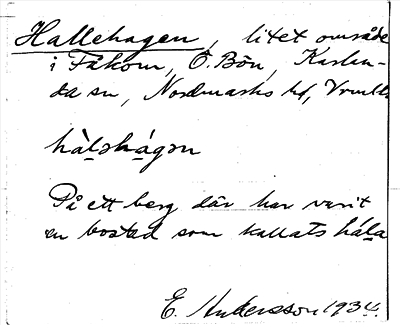 Hallehagen, litet område
i Fåkom, Ö. Bön, Karlan-
da sn, Nordmarks hd, Vrmlds
hàləhágən
På ett berg där har varit
en bostad som kallats hála
E. Andersson 1934.